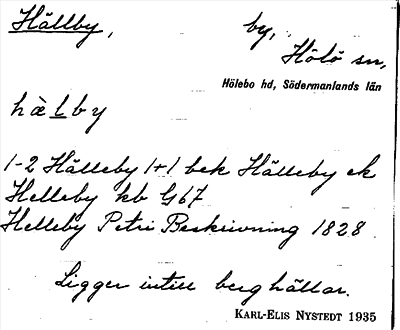 Hällby, by,
Hölö sn,
Hölebo hd, Södermanlands län
hὰlby
1-2 Hälleby 1+1 bek Hälleby ek
Helleby kb G67
Helleby Petri Beskrivning 1828
Ligger intill berghällar.
KARL-ELIS NYSTEDT 1935